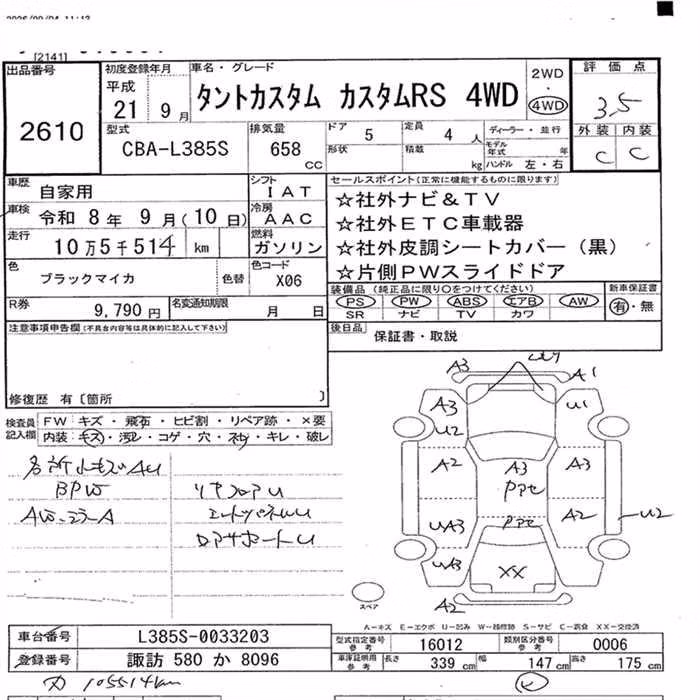 [2141]
出品番号
2610
初度登録年月
平成
21 9月
車名・グレード
タントカスタム カスタムRS 4WD
2WD
・
4WD
評価点
3.5
外装 内装
C C
型式
CBA-L385S
排気量
658 CC
ドア 5
定員 4人
形状
積載 kg
ディーラー・並行
モデル年式 年
ハンドル 左・右
車歴 自家用
シフト IAT
車検 令和 8年 9月(10日)
冷房 AAC
走行 10万5千514 km
燃料 ガソリン
色 ブラックマイカ 色替
色コード X06
R券 9,790円
名変通知期限 月 日
セールスポイント(正常に機能するものに限ります)
☆社外ナビ&TV
☆社外ETC車載器
☆社外皮調シートカバー(黒)
☆片側PWスライドドア
装備品(純正品に限り○をつけてください)
PS PW ABS エアB AW
SR ナビ TV カワ
新車保証書
有・無
後日品 保証書・取説
注意事項申告欄(不具合内容等は具体的に記入して下さい)
修復歴 有〔箇所 〕
検査員記入欄
FW キズ・飛石・ヒビ割・リペア跡・×要
内装 キズ・汚れ・コゲ・穴・ネジ・キレ・破レ
各所小キズAU
BPW
リヤフロアU
AW.コラーA
エンドパネルU
Dアサポートu
A3
A1
A3
U1
U2
A2
A3
A3
PPセ
UA3
PPセ
A2
U2
UA3
XX
A2
スペア
A-キズ E-エクボ U-凹み W-補修跡 S-サビ C-腐食 XX-交換済
車台番号 L385S-0033203
登録番号 諏訪 580 か 8096
型式指定番号 参考 16012
類別区分番号 参考 0006
車庫証明用 参考 長さ 339 cm 幅 147 cm 高さ 175 cm
105514km